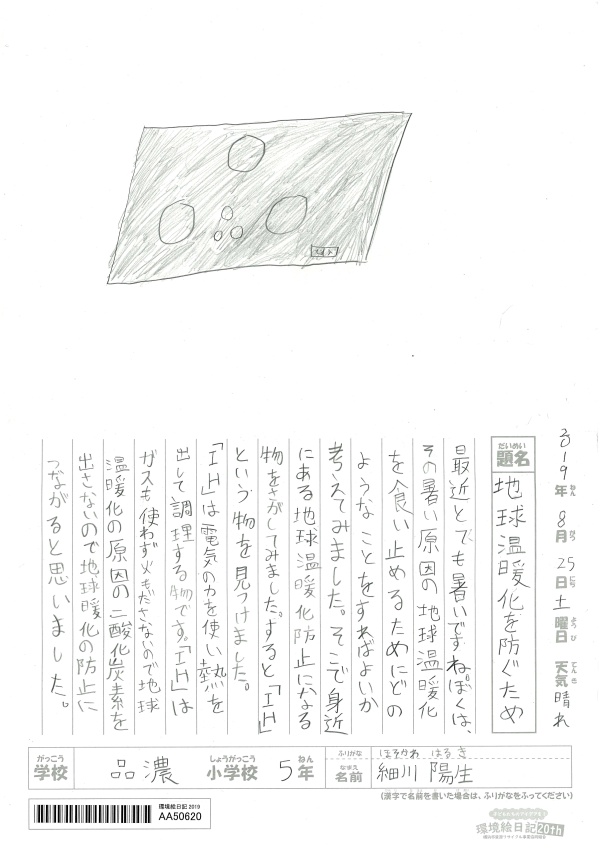 019年8月25日土曜日 天気晴れ
ねん がつ にち ようび てんき
だいめい
題名 地球温暖化を防ぐため
最近とても暑いですね。ぼくは、
その暑い原因の地球温暖化
を食い止めるためにどの
ようなことをすればよいか
考えてみました。そこで身近
にある地球温暖化防止になる
物をさがしてみました。すると「IH」
という物を見つけました。
「IH」は電気の力を使い熱を
出して調理する物です。「IH」は
ガスも使わず火もださないので地球
温暖化の原因の二酸化炭素を
出さないので地球暖化の防止に
つながると思いました。
がっこう しょうがっこう ねん
学校 品濃 小学校 5年
ふりがな ほそかわ はるき
なまえ
名前 細川 陽生
(漢字で名前を書いた場合は、ふりがなをふってください)
環境絵日記 2019
AA50620
環境絵日記20th